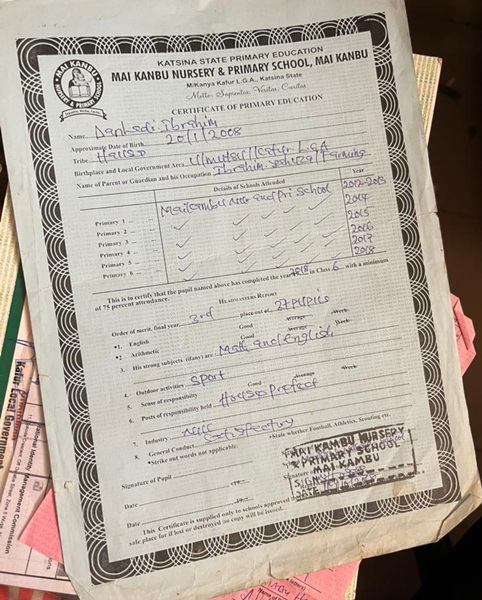 KATSINA STATE PRIMARY EDUCATION
MAI KANBU NURSERY & PRIMARY SCHOOL, MAI KANBU
M/Kanya Kafur L.G.A., Katsina State
Motto: Sapientia, Veritas, Caritas
CERTIFICATE OF PRIMARY EDUCATION
MAI KANBU
NURSERY & PRIMARY SCHOOL
Name Ibrahim
Approximate Date of Birth 20/1/2008
Tribe Hausa
Birthplace and Local Government Area L.G.A
Name of Parent or Guardian and his Occupation Ibrahim Farming
Details of Schools Attended Year
Primary 1 and Pri School 2012-2013
Primary 2 2014
Primary 3 2015
Primary 4 2016
Primary 5 2017
Primary 6 2018
This is to certify that the pupil named above has completed the year 2018 in Class 6 with a minimum
of 75 percent attendance.
HEADMASTERS REPORT
Order of merit, final year. 3rd place out of 27 pupils
*1. English Good Average Week
*2 Arithmetic Good Average Week
3. His strong subjects (if any) are Math and English
4. Outdoor activities sport
5. Sense of responsibility Good Average Week
6. Posts of responsibility held House prefect
7. Industry
8. General Conduct Satisfactory
*Strike out words not applicable. *State whether Football, Athletics, Scouting etc.
Signature of Pupil
MAI KANBU NURSERY
& PRIMARY SCHOOL
MAI KANBU
SIGN
DATE
Date
Date
This Certificate is supplied only to schools approved
safe place for if lost or destroyed no copy will be issued.
Kafur Local Government
Identity Management Commission